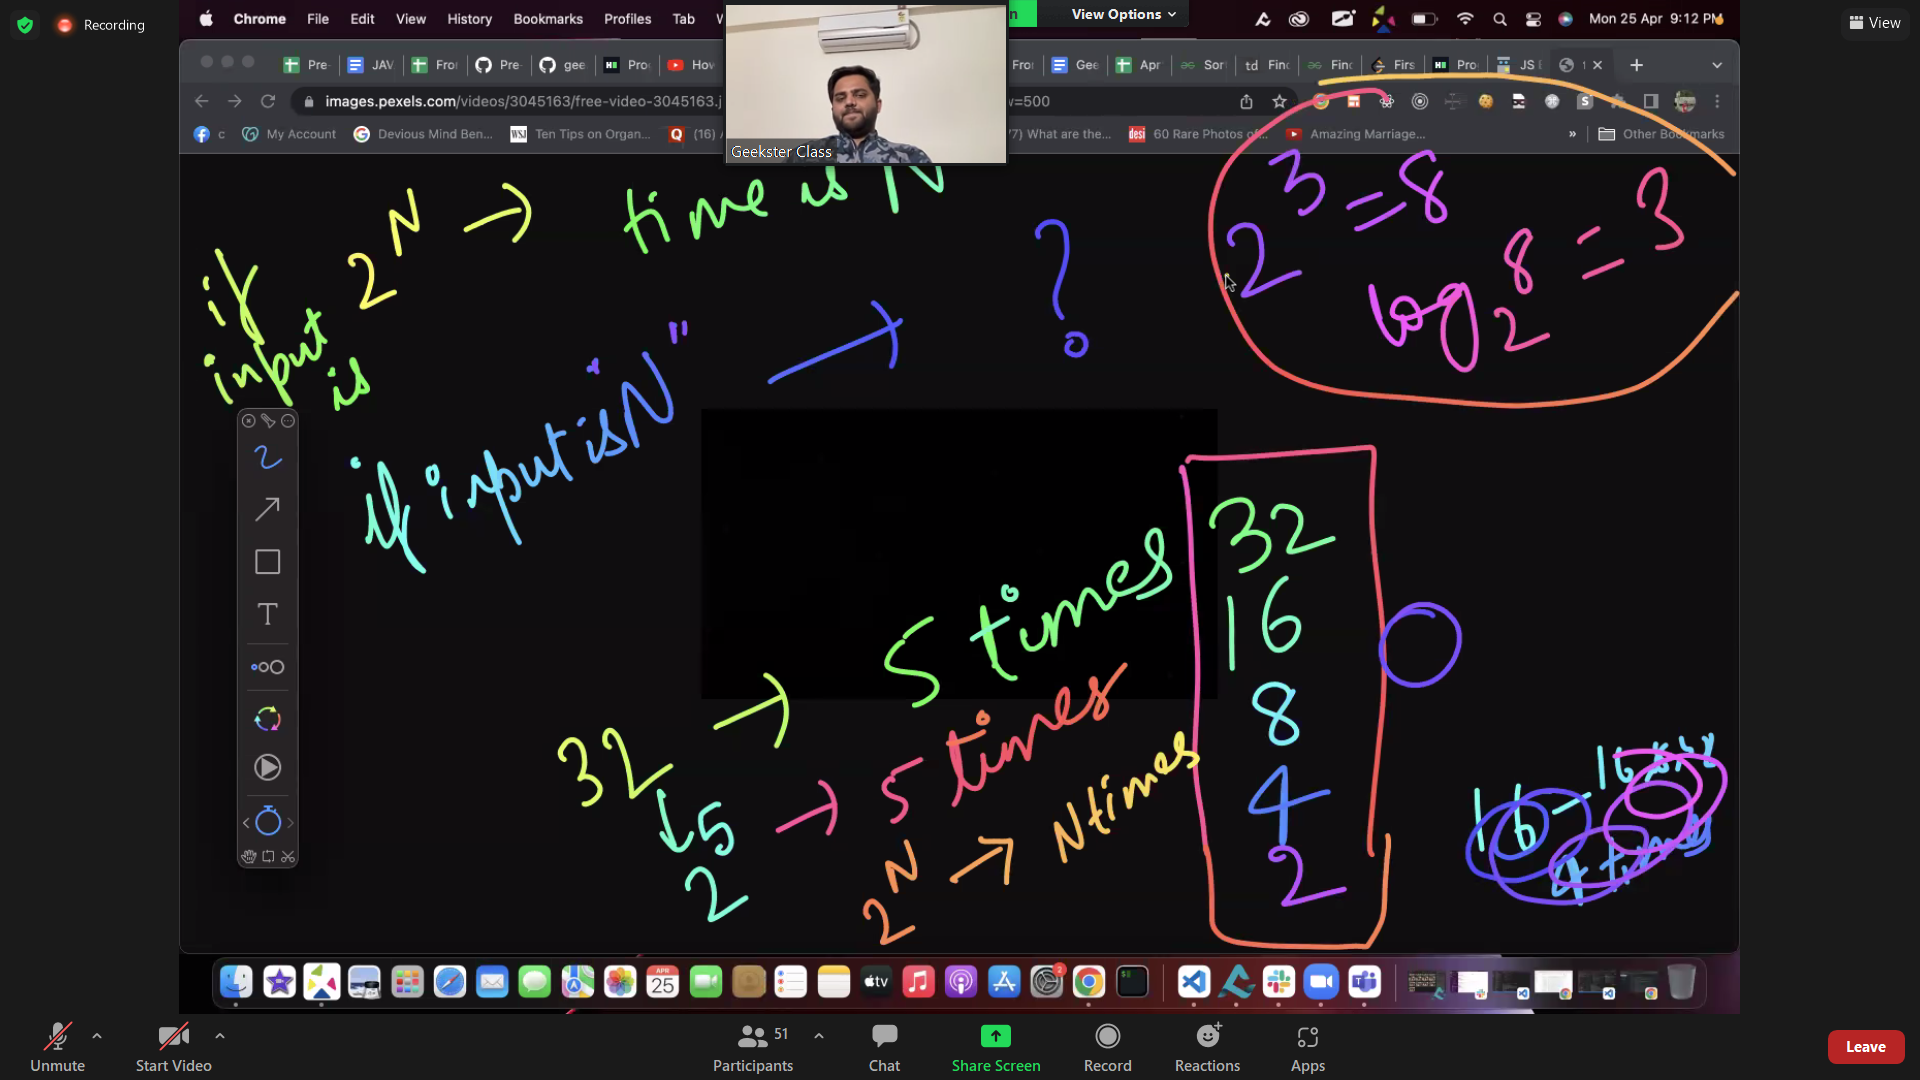 Recording
Chrome File Edit View History Bookmarks Profiles Tab
View Options
Mon 25 Apr 9:12 PM
View
Pre- JAV Fror Pre- gee Pro How Fror Gee Apr Sor td Finc Finc Firs Pro JS E
images.pexels.com/videos/3045163/free-video-3045163.j
w=500
c My Account Devious Mind Ben... WSJ Ten Tips on Organ... (16)
7) What are the... desi 60 Rare Photos of... Amazing Marriage... » Other Bookmarks
Geekster Class
if input is 2^N → time is N
2^3 = 8
log_2 8 = 3
if input is "N" → ?
32 → 5 times
2^5 → 5 times
2^N → N times
32
16
8
4
2
16 –
4 times
T
APR
25
tv
2
51
Unmute Start Video Participants Chat Share Screen Record Reactions Apps Leave